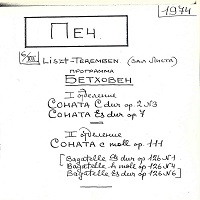 1974
ПЕЧ.
5/XII LISZT-TEREMBEN. (ЗАЛ ЛИСТА)
ПРОГРАММА
БЕТХОВЕН
I отделение
СОНАТА C dur op 2 N3
СОНАТА Es dur op 7
II отделение
СОНАТА c moll op 111
[Bagatelle Es dur op 126 N1
Bagatelle h moll op 126 N4
Bagatelle Es dur op 126 N6]